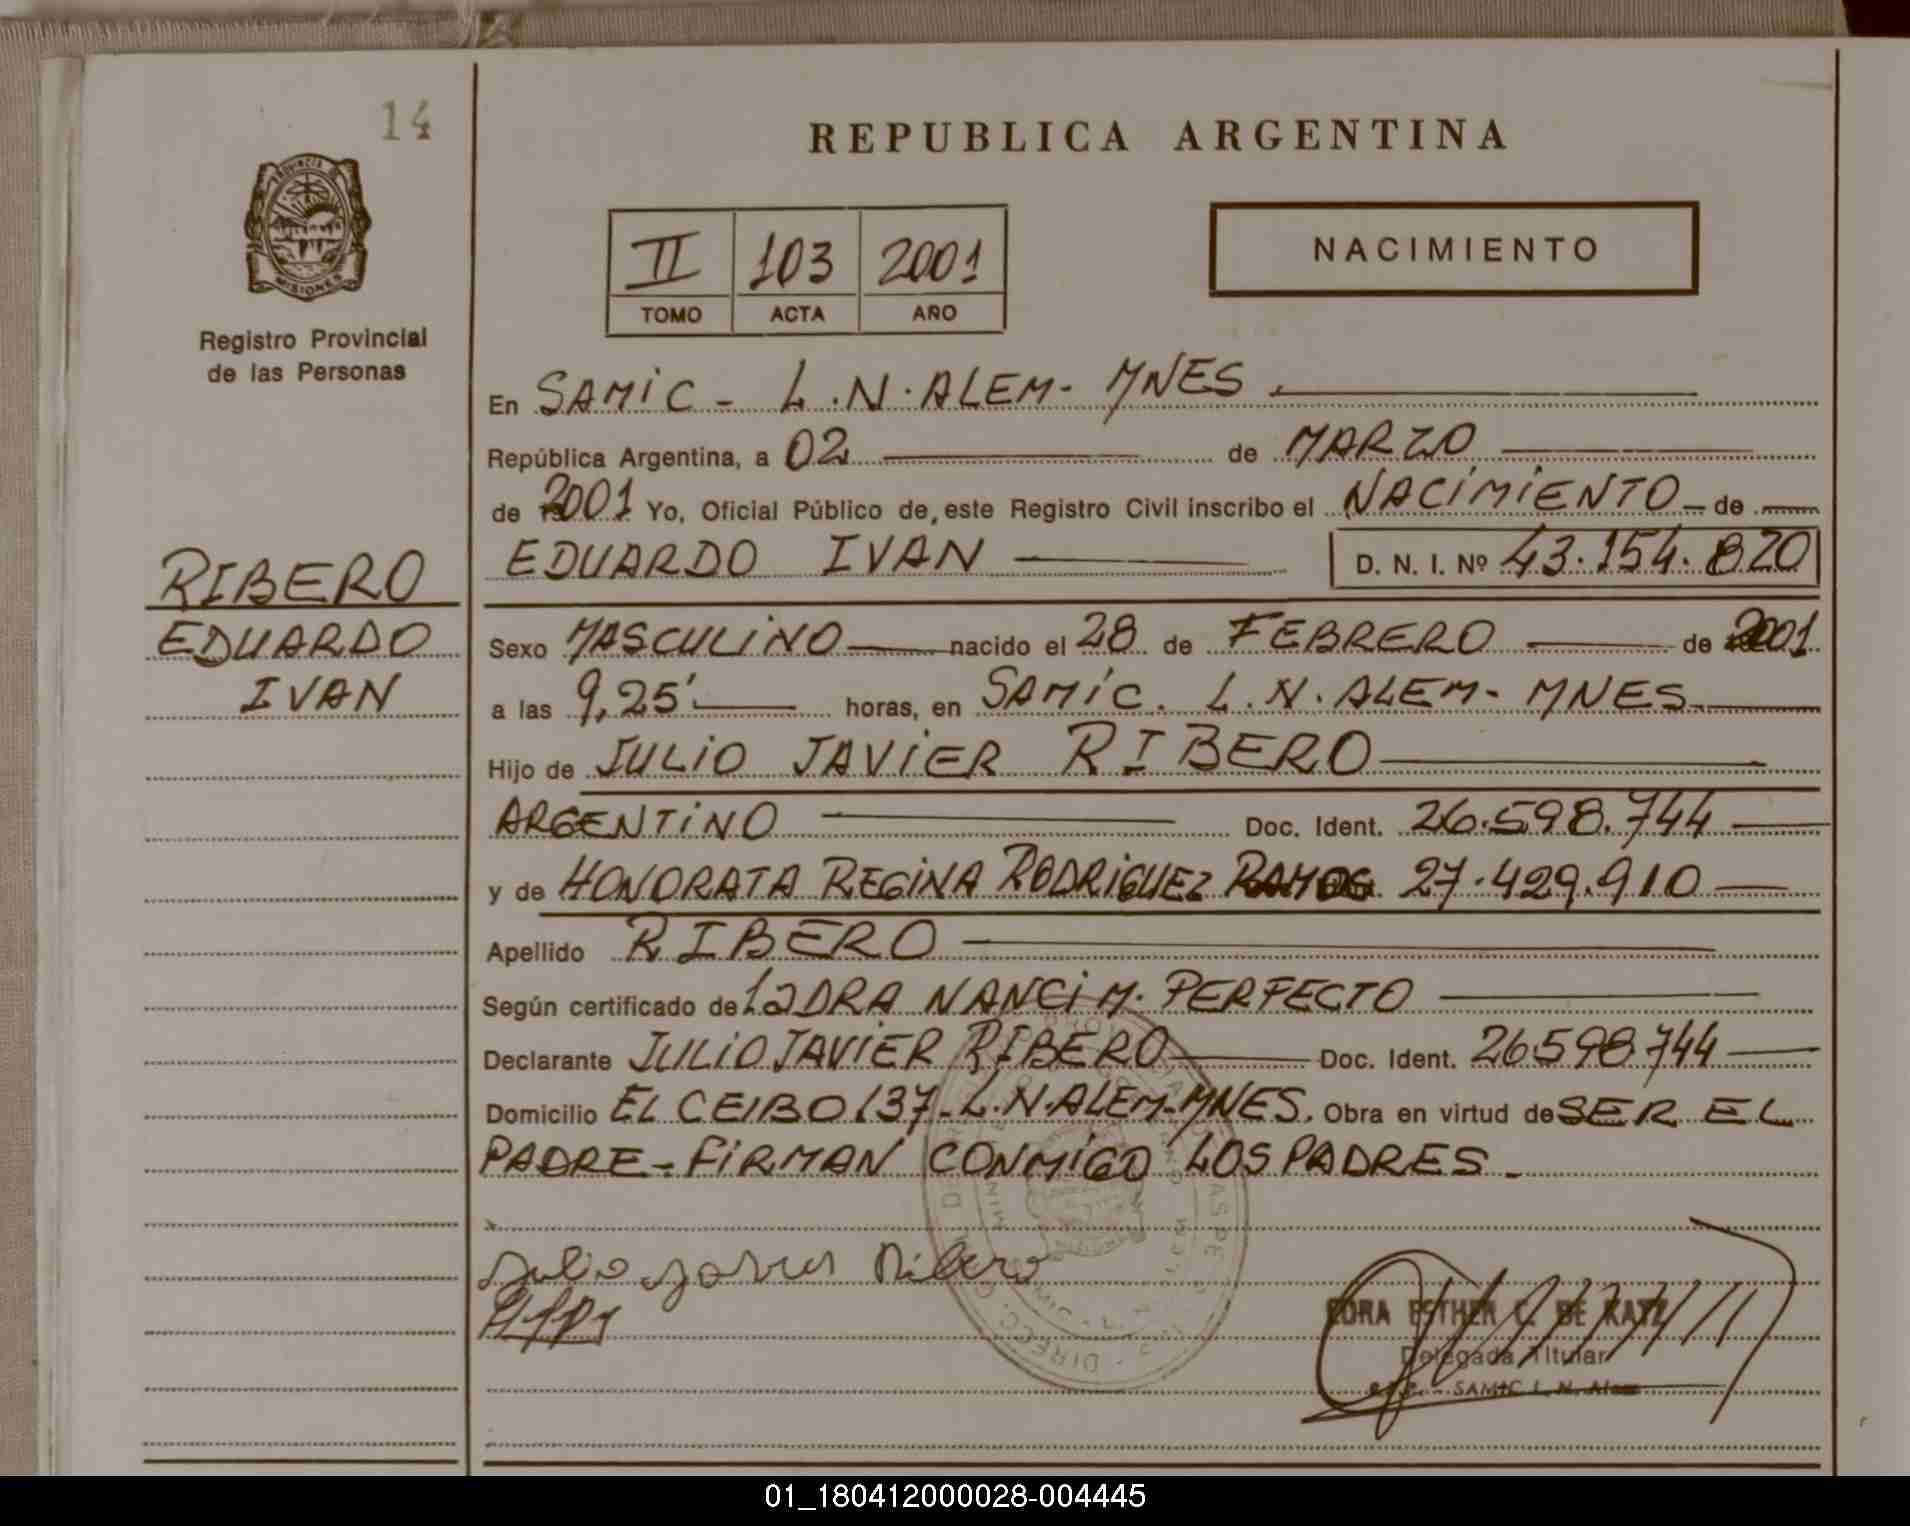 14
REPUBLICA ARGENTINA
PROVINCIA DE
MISIONES
II 103 2001
TOMO ACTA AÑO
NACIMIENTO
Registro Provincial
de las Personas
En SAMIC - L.N. ALEM - MNES
República Argentina, a 02 de MARZO
de 2001 Yo, Oficial Público de, este Registro Civil inscribo el NACIMIENTO de
EDUARDO IVAN D. N. I. Nº 43.154.820
RIBERO
EDUARDO
IVAN
Sexo MASCULINO nacido el 28 de FEBRERO de 2001
a las 9,25' horas, en SAMIC. L.N. ALEM - MNES
Hijo de JULIO JAVIER RIBERO
ARGENTINO Doc. Ident. 26.598.744
y de HONORATA REGINA RODRIGUEZ RAMOS 27.429.910
Apellido RIBERO
Según certificado de LADRA NANCI M. PERFECTO
Declarante JULIO JAVIER RIBERO Doc. Ident. 26598744
Domicilio EL CEIBO 137 - L.N. ALEM - MNES. Obra en virtud de SER EL
PADRE - FIRMAN CONMIGO LOS PADRES -
Julio Javier Ribero
ESTHER C. DE KATZ
Delegada Titular
SAMIC L. N. Alem
01_180412000028-004445